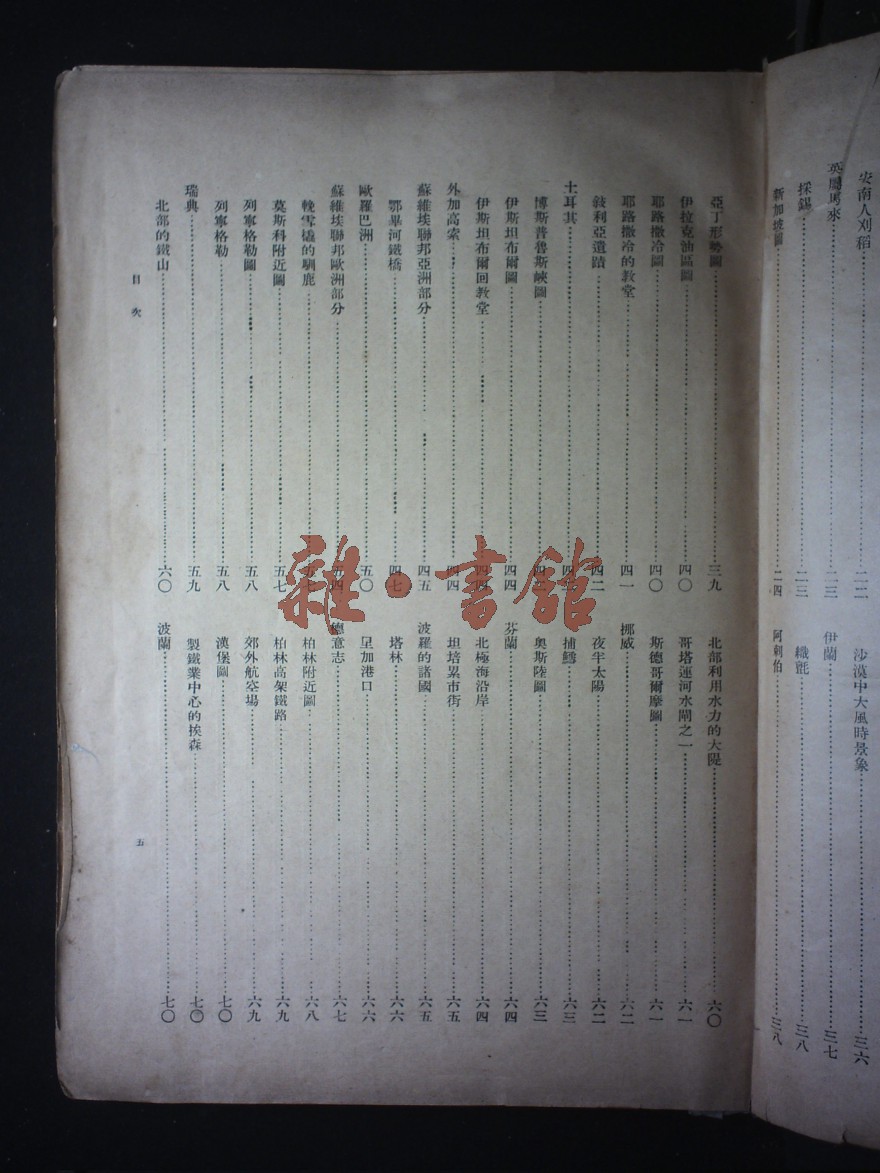 安南人刈稻……二二
英屬馬來……二三
採錫……二三
新加坡圖……二四
沙漠中大風時景象……三六
伊蘭……三七
織氈……三八
阿剌伯……三八
亞丁形勢圖……三九
伊拉克油區圖……四〇
耶路撒冷圖……四〇
耶路撒冷的教堂……四一
敍利亞遺蹟……四二
土耳其……
博斯普魯斯峽圖……
伊斯坦布爾圖……四四
伊斯坦布爾回教堂……四四
外加高索……四四
蘇維埃聯邦亞洲部分……四五
鄂畢河鐵橋……四七
歐羅巴洲……五〇
蘇維埃聯邦歐洲部分……五四
輓雪橇的馴鹿……
莫斯科附近圖……五七
列寧格勒圖……五八
列寧格勒……五八
瑞典……五九
北部的鐵山……六〇
北部利用水力的大隄……六〇
哥塔運河水閘之一……六一
斯德哥爾摩圖……六一
挪威……六二
夜半太陽……六二
捕鱈……六三
奧斯陸圖……六三
芬蘭……六四
北極海沿岸……六四
坦培累市街……六五
波羅的諸國……六五
塔林……六六
里加港口……六六
德意志……六七
柏林附近圖……六八
柏林高架鐵路……六九
郊外航空場……六九
漢堡圖……七〇
製鐵業中心的挨森……七〇
波蘭……七〇
目次
五
雜·書館